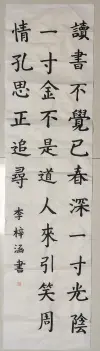 讀書不覺已春深一寸光陰
一寸金不是道人來引笑周
情孔思正追尋
李梓涵書